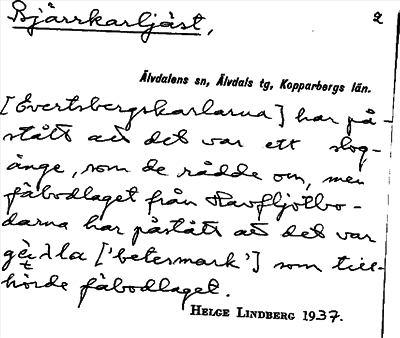 Bjärrkarljäst, 2
Älvdalens sn, Älvdals tg, Kopparbergs län.
[Evertsbergskarlarna] har på-
stått att det var ett slog-
änge, som de rådde om, men
fäbodlaget från
darna har påstått att det var
['betesmark'] som till-
hörde fäbodlaget.
HELGE LINDBERG 1937.